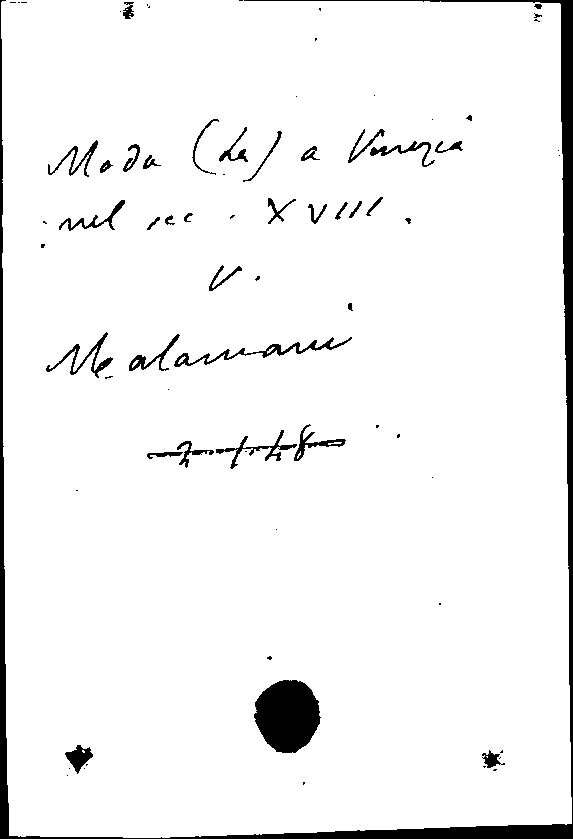 Moda (La) a Venezia
nel sec. XVIII.
V.
Malamani
2.1.48